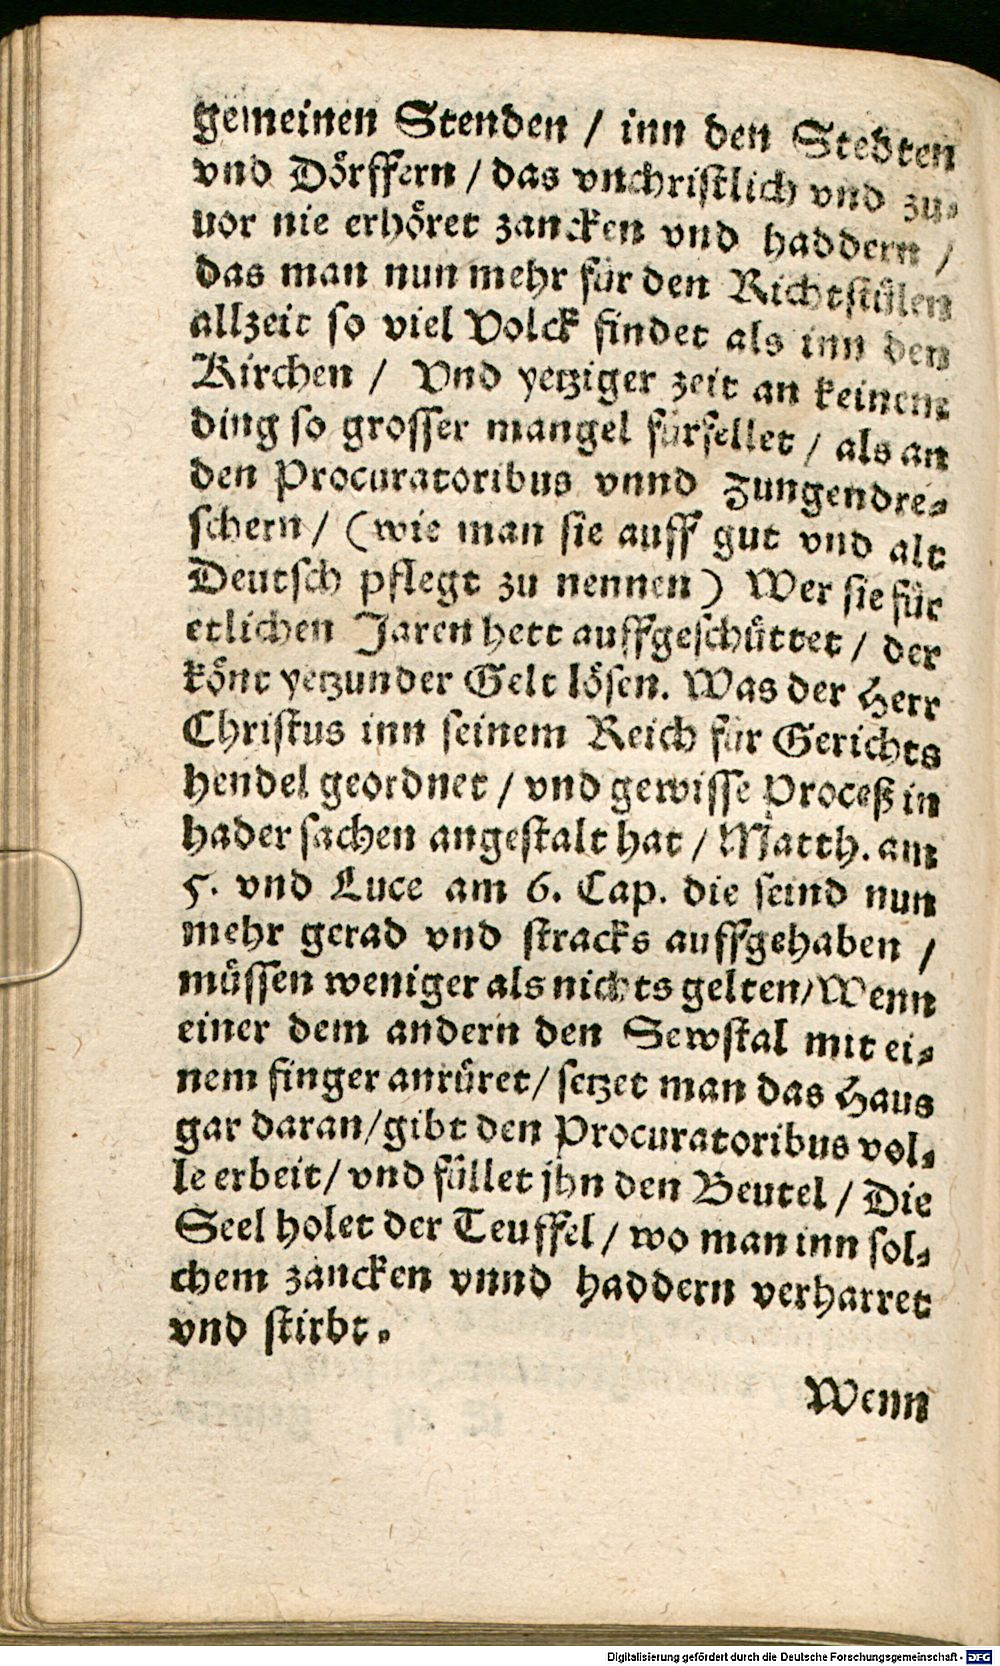 gemeinen Stenden / inn den Stedten
vnd Dörffern / das vnchristlich vnd zu⸗
uor nie erhöret zancken vnd haddern /
das man nun mehr für den Richtstülen
allzeit so viel Volck findet als inn den
Kirchen / Vnd yetziger zeit an keinem
ding so grosser mangel fürfellet / als an
den Procuratoribus vnnd Zungendre⸗
schern / (wie man sie auff gut vnd alt
Deutsch pflegt zu nennen) Wer sie für
etlichen Jaren hett auffgeschüttet / der
könt yetzunder Gelt lösen. Was der Herr
Christus inn seinem Reich für Gerichts
hendel geordnet / vnd gewisse Proceß in
hader sachen angestalt hat / Matth. am
5. vnd Luce am 6. Cap. die seind nun
mehr gerad vnd stracks auffgehaben /
müssen weniger als nichts gelten / Wenn
einer dem andern den Sewstal mit ei⸗
nem finger anrüret / setzet man das Haus
gar daran / gibt den Procuratoribus vol⸗
le erbeit / vnd füllet jhn den Beutel / Die
Seel holet der Teuffel / wo man inn sol⸗
chem zancken vnnd haddern verharret
vnd stirbt.
Wenn
Digitalisierung gefördert durch die Deutsche Forschungsgemeinschaft - DFG